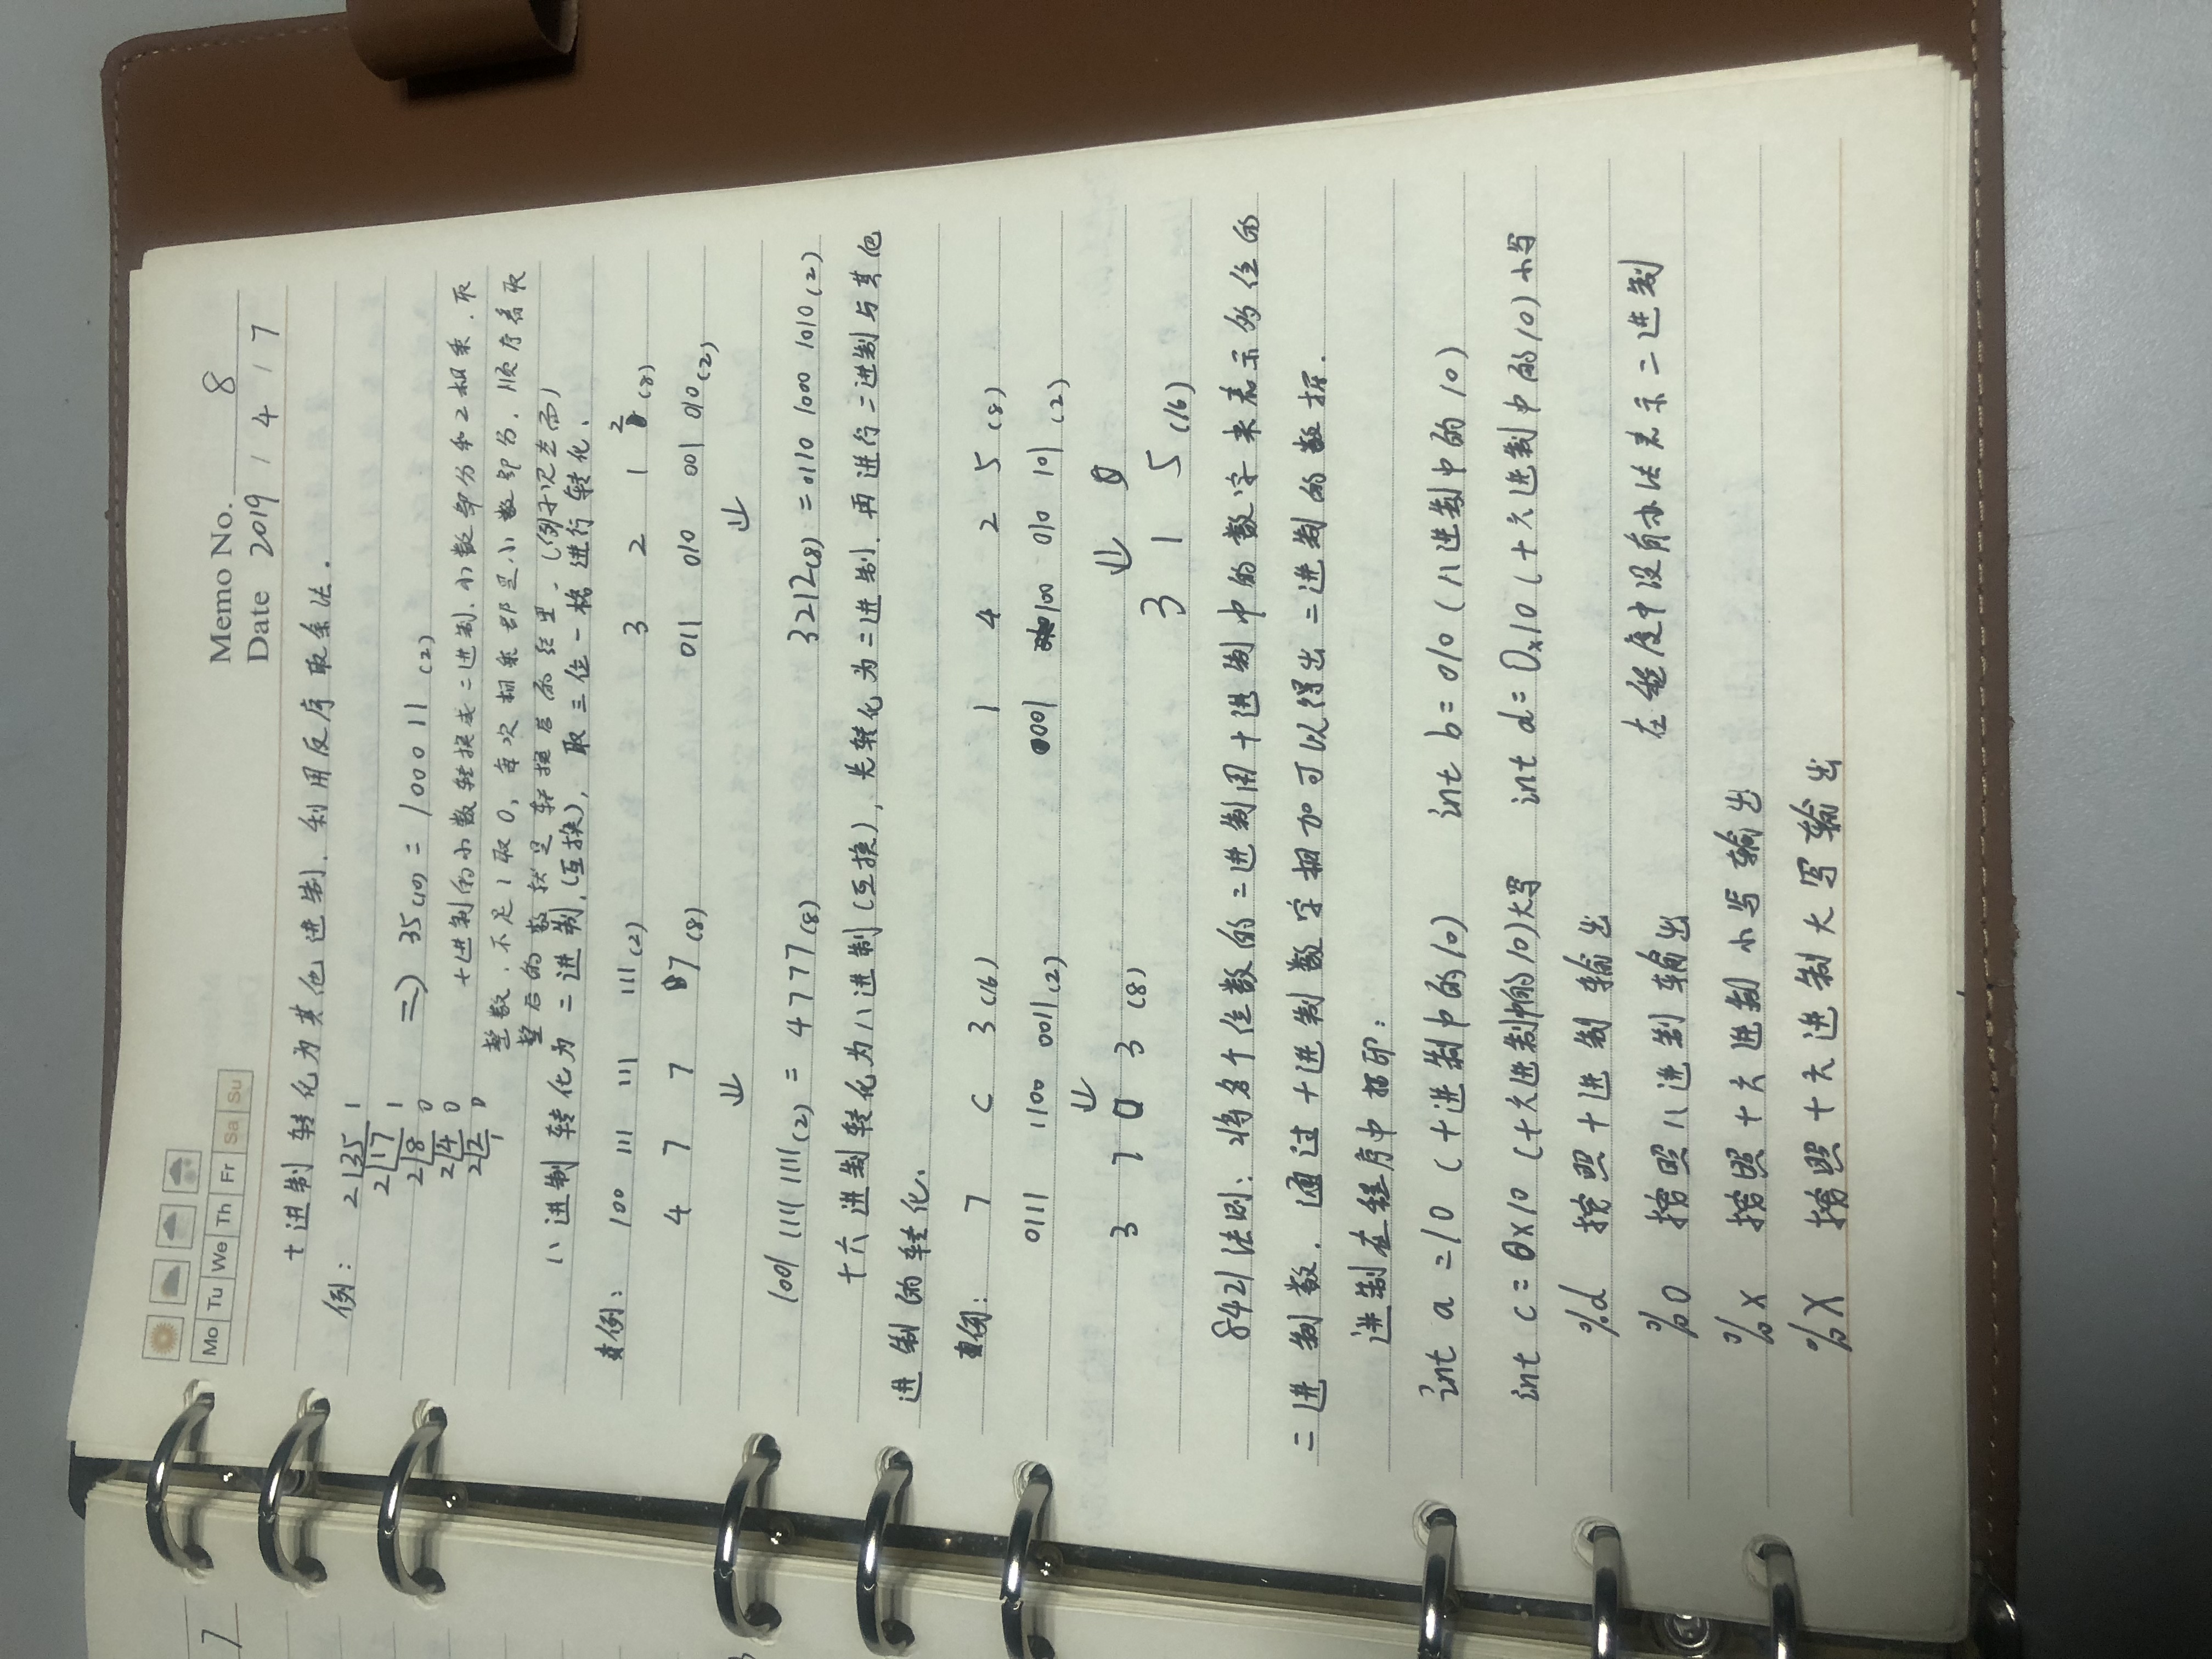 7
Memo No. 8
Mo Tu We Th Fr Sa Su
Date 2019 / 4 / 17
十进制转化为其他进制,利用反序取余法.
例: 2|35 1
2|17 1 => 35(10) = 100011 (2)
2|8 0
2|4 0
2|2 0
1
十进制的小数转换成二进制,小数部分和2相乘,取
整数,不足1取0,每次相乘都是小数部分,顺序看取
整后的数就是转换后的结果.(例子见左面)
八进制转化为二进制,(互换),取三位一格进行转化、
查例: 100 111 111 111 (2) 3 2 1 2 (8)
4 7 7 7 (8) 011 010 001 010 (2)
⇓ ⇓
1001 1111 1111 (2) = 4777 (8) 3212(8) = 0110 1000 1010 (2)
十六进制转化为八进制(互换),先转化为二进制,再进行二进制与其他
进制的转化.
查例: 7 C 3 (16) 1 4 2 5 (8)
0111 1100 0011 (2) 0001 100 010 101 (2)
⇓ ⇓
3 7 0 3 (8) 3 1 5 (16)
8421法则:将多个位数的二进制用十进制中的数字来表示多位的
二进制数.通过十进制数字相加可以得出二进制的数据.
进制在程序中打印:
int a = 10 (十进制中的10) int b = 010 (八进制中的10)
int c = 0X10 (十六进制中的10)大写 int d = 0x10 (十六进制中的10)小写
%d 按照十进制输出
%o 按照八进制输出 在程度中没有办法表示二进制
%x 按照十六进制小写输出
%X 按照十六进制大写输出